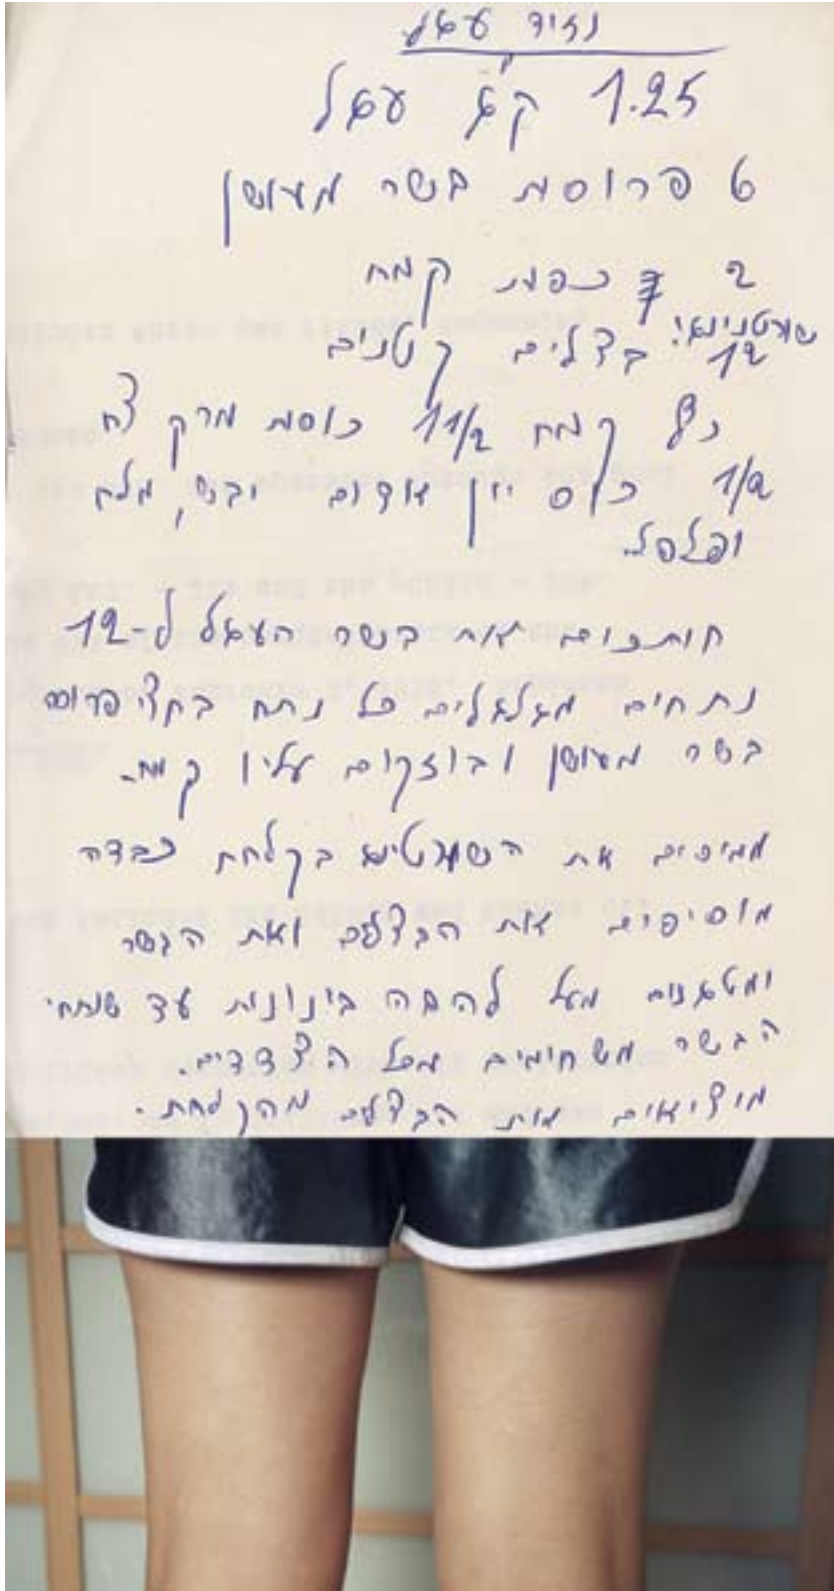 נזיד עגל
1.25 ק"ג עגל
6 פרוסות בשר מעושן
2 כפות קמח
שורטנינג!
12 בצלים קטנים
כף קמח 1 1/2 כוסות מרק צח
1/2 כוס יין אדום יבש, מלח
ופלפל.
חותכים את בשר העגל ל-12
נתחים מגלגלים כל נתח בחצי פרוסת
בשר מעושן ובוזקים עליו קמח.
ממיסים את השורטנינג בקלחת כבדה
מוסיפים את הבצלים ואת הבשר
ומטגנים מעל להבה בינונית עד שנתחי
הבשר משחימים מכל הצדדים.
מוציאים את הבצלים מהקלחת.